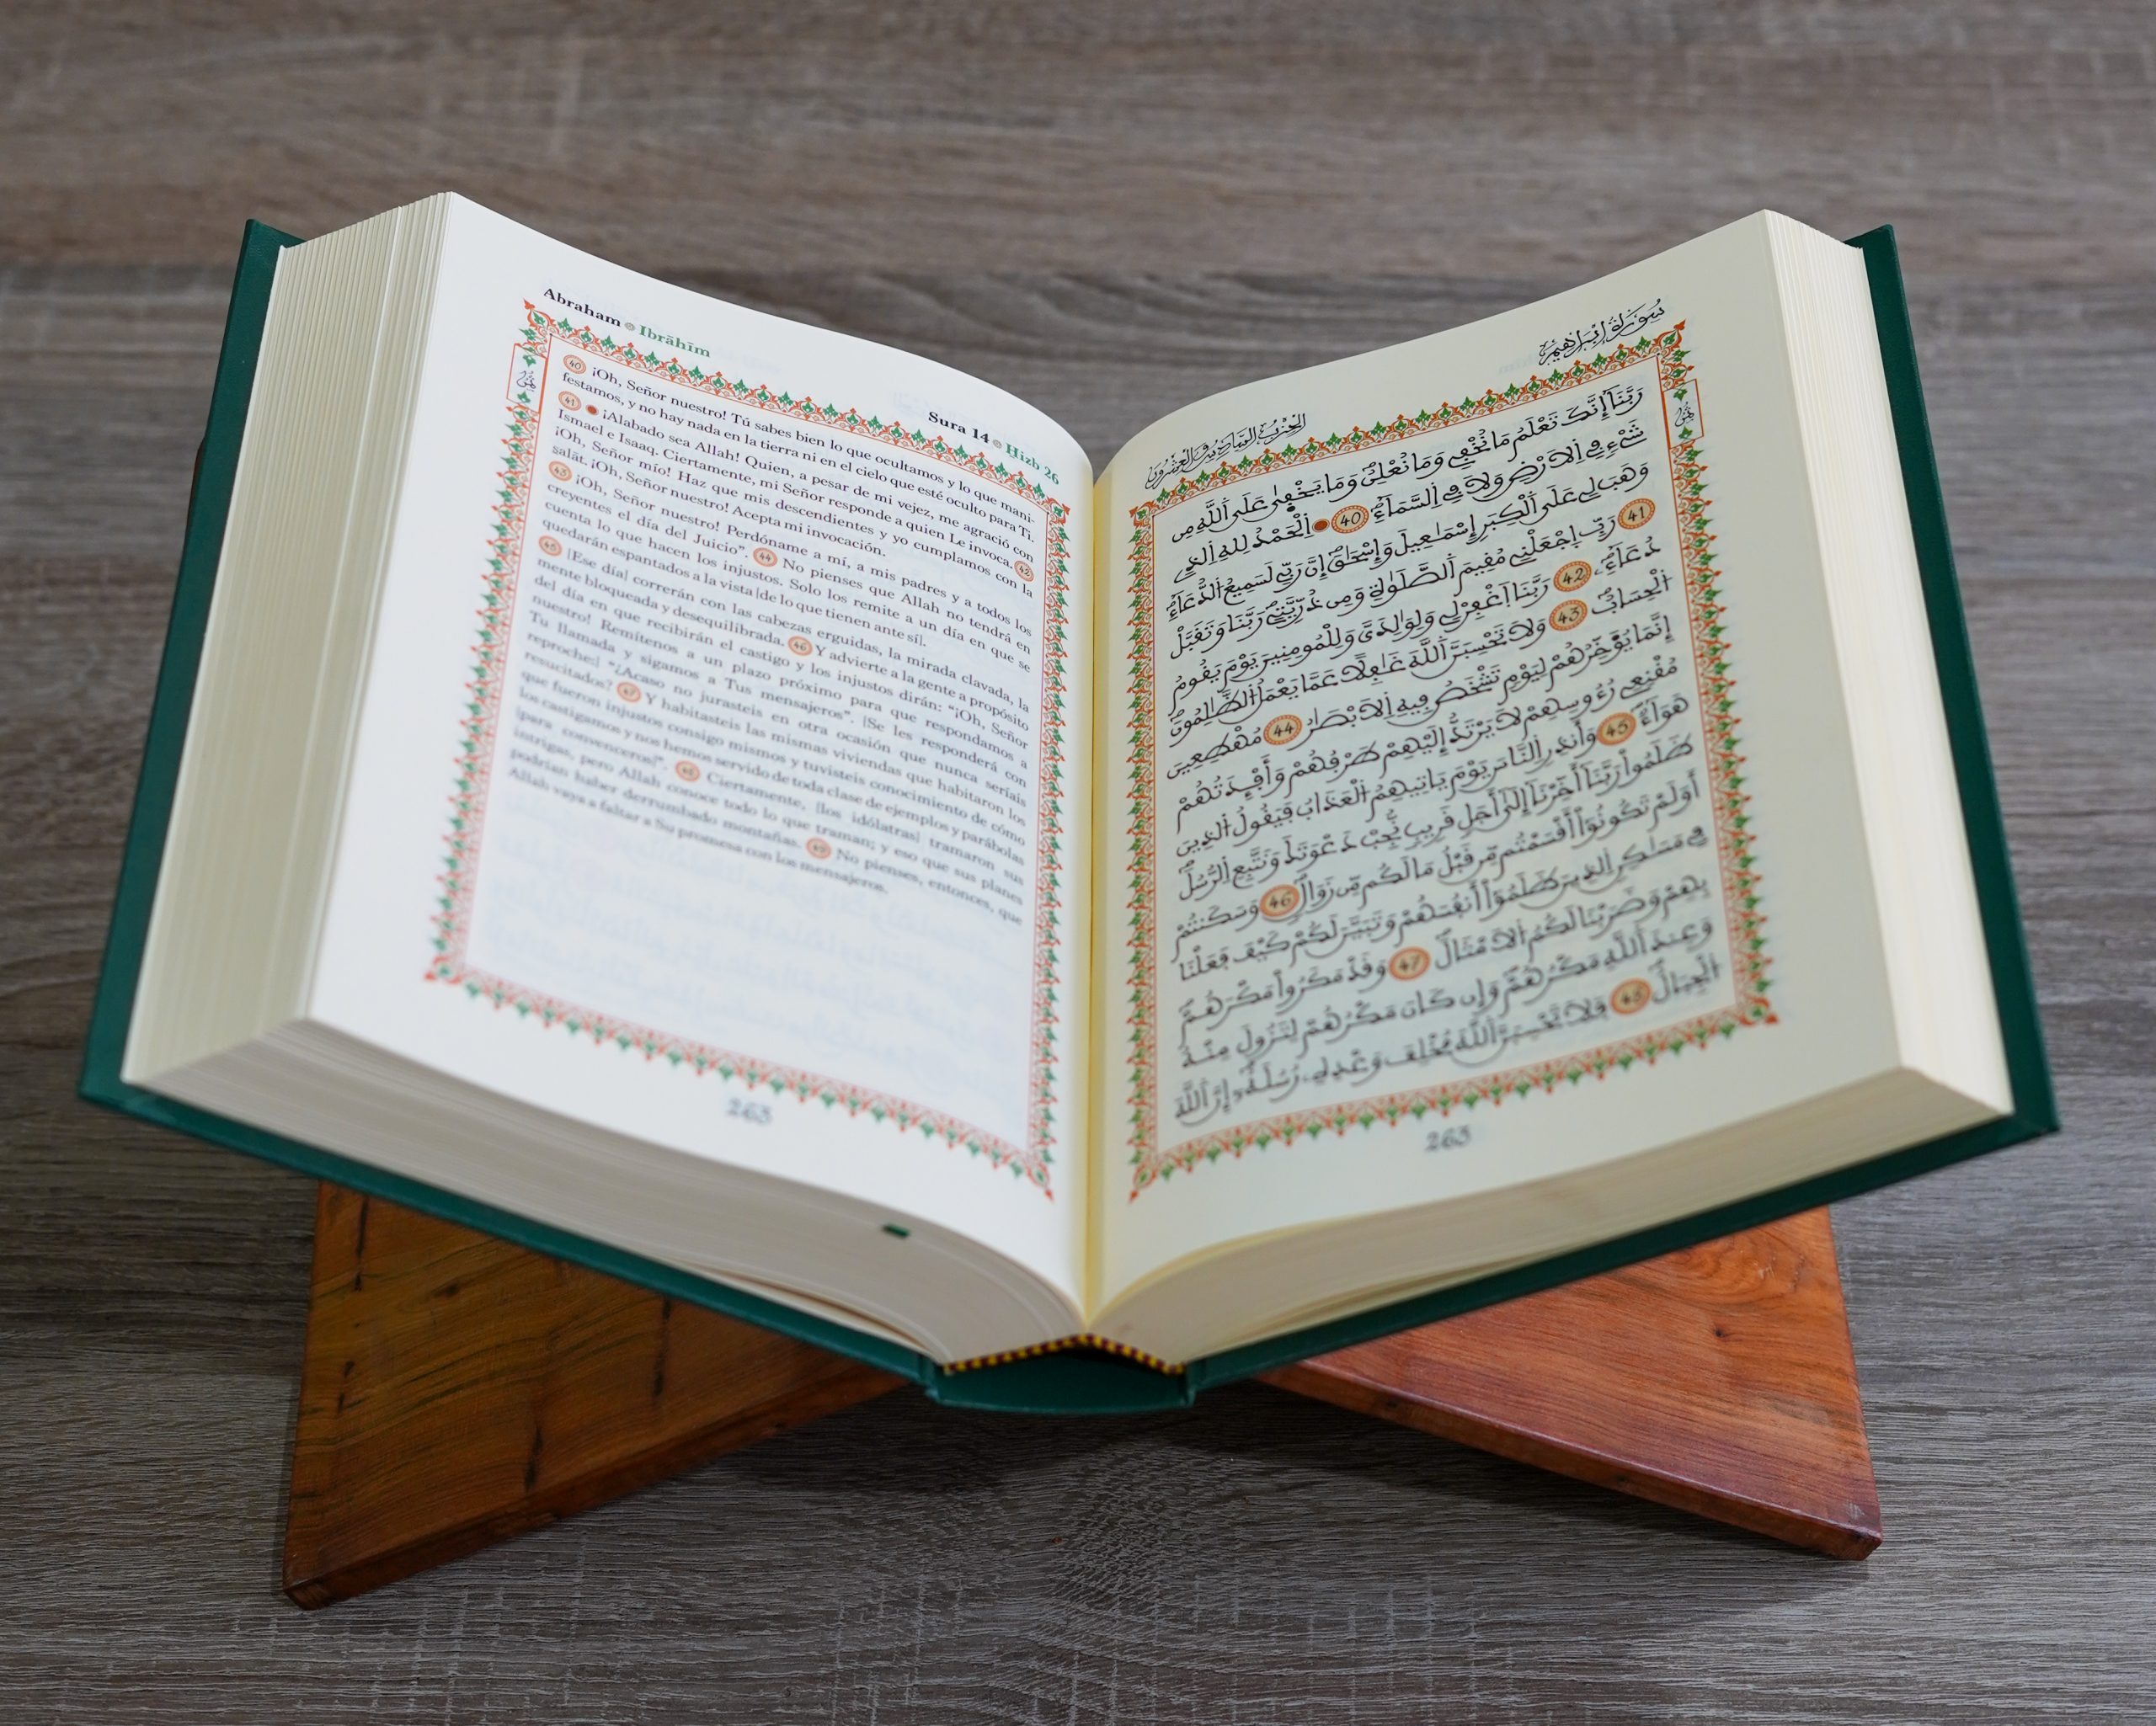 Abraham ● Ibrāhīm Sura 14 ● Ḥizb 26
ثمن
40 ¡Oh, Señor nuestro! Tú sabes bien lo que ocultamos y lo que mani-
festamos, y no hay nada en la tierra ni en el cielo que esté oculto para Ti.
41 ● ¡Alabado sea Allah! Quien, a pesar de mi vejez, me agració con
Ismael e Isaac. Ciertamente, mi Señor responde a quien Le invoca. 42
¡Oh, Señor mío! Haz que mis descendientes y yo cumplamos con la
salāt. ¡Oh, Señor nuestro! Acepta mi invocación.
43 ¡Oh, Señor nuestro! Perdóname a mí, a mis padres y a todos los
creyentes el día del Juicio”. 44 No pienses que Allah no tendrá en
cuenta lo que hacen los injustos. Solo los remite a un día en que se
quedarán espantados a la vista |de lo que tienen ante sí|.
45 |Ese día| correrán con las cabezas erguidas, la mirada clavada, la
mente bloqueada y desequilibrada. 46 Y advierte a la gente a propósito
del día en que recibirán el castigo y los injustos dirán: “¡Oh, Señor
nuestro! Remítenos a un plazo próximo para que respondamos a
Tu llamada y sigamos a Tus mensajeros”. |Se les responderá con
reproche:| “¿Acaso no jurasteis en otra ocasión que nunca seríais
resucitados? 47 Y habitasteis las mismas viviendas que habitaron los
que fueron injustos consigo mismos y tuvisteis conocimiento de cómo
los castigamos y nos hemos servido de toda clase de ejemplos y parábolas
|para convenceros|”. 48 Ciertamente, |los idólatras| tramaron sus
intrigas, pero Allah conoce todo lo que traman; y eso que sus planes
podrían haber derrumbado montañas. 49 No pienses, entonces, que
Allah vaya a faltar a Su promesa con los mensajeros.
263
سُورَةُ إِبْرَاهِيمَ الحِزْبُ السَّادِسُ وَالعِشْرُونَ
ثمن
رَبَّنَا إِنَّكَ تَعْلَمُ مَا نُخْفِي وَمَا نُعْلِنُ وَمَا يَخْفَىٰ عَلَى اَللَّهِ مِن
شَيْءٍ فِي اِلَارْضِ وَلَا فِي اِلسَّمَاءِ 40 ● اِلْحَمْدُ لِلهِ اِلذِي
وَهَبَ لِي عَلَى اَلْكِبَرِ إِسْمَاعِيلَ وَإِسْحَاقَ إِنَّ رَبِّي لَسَمِيعُ اُلدُّعَاءِ
41 رَبِّ اِجْعَلْنِي مُقِيمَ اَلصَّلَوٰةِ وَمِن ذُرِّيَّتِي رَبَّنَا وَتَقَبَّلْ
دُعَاءِ 42 رَبَّنَا اَغْفِرْ لِي وَلِوَٰلِدَيَّ وَلِلْمُومِنِينَ يَوْمَ يَقُومُ
اُلْحِسَابُ 43 وَلَا تَحْسِبَنَّ اَللَّهَ غَٰفِلًا عَمَّا يَعْمَلُ اُلظَّٰلِمُونَ
إِنَّمَا يُوَخِّرُهُمْ لِيَوْمٍ تَشْخَصُ فِيهِ اِلَابْصَٰرُ 44 مُهْطِعِينَ
مُقْنِعِي رُءُوسِهِمْ لَا يَرْتَدُّ إِلَيْهِمْ طَرْفُهُمْ وَأَفْـِٕدَتُهُمْ
هَوَاءٌ 45 وَأَنذِرِ اِلنَّاسَ يَوْمَ يَاتِيهِمُ اُلْعَذَابُ فَيَقُولُ اُلذِينَ
ظَلَمُواْ رَبَّنَا أَخِّرْنَا إِلَىٰ أَجَلٍ قَرِيبٍ نُّجِبْ دَعْوَتَكَ وَنَتَّبِعِ اِلرُّسُلَ
أَوَلَمْ تَكُونُواْ أَقْسَمْتُم مِّن قَبْلُ مَا لَكُم مِّن زَوَالٍ 46 وَسَكَنتُمْ
فِي مَسَٰكِنِ اِلذِينَ ظَلَمُواْ أَنفُسَهُمْ وَتَبَيَّنَ لَكُمْ كَيْفَ فَعَلْنَا
بِهِمْ وَضَرَبْنَا لَكُمُ اُلَامْثَالَ 47 وَقَدْ مَكَرُواْ مَكْرَهُمْ
وَعِندَ اَللَّهِ مَكْرُهُمْ وَإِن كَانَ مَكْرُهُمْ لِتَزُولَ مِنْهُ
اُلْجِبَالُ 48 فَلَا تَحْسِبَنَّ اَللَّهَ مُخْلِفَ وَعْدِهِ رُسُلَهُ إِنَّ اَللَّهَ
263